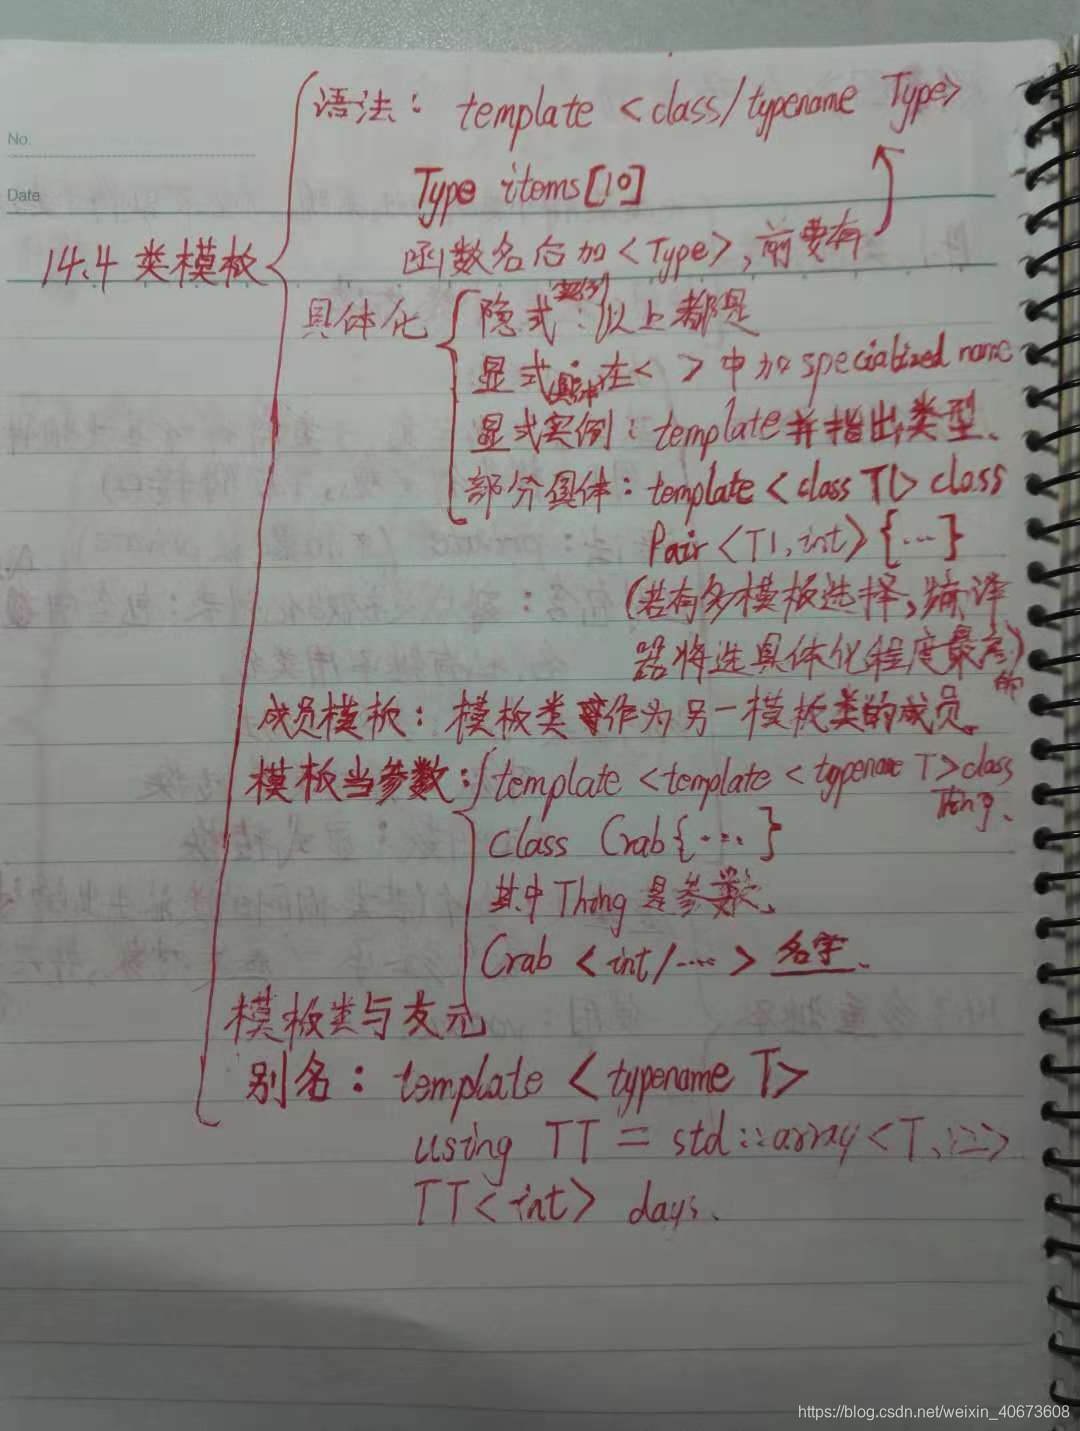 No.
Date
14.4 类模板
语法: template <class/typename Type>
Type items[10]
函数名后加<Type>,前要有
具体化
隐式实例:以上都是
显式具体:在< >中加specialized name
显式实例:template并指出类型.
部分具体:template<class T1>class
Pair<T1,int>{...}
(若有多模板选择,编译
器将选具体化程度最高的)
成员模板:模板类可作为另一模板类的成员.
模板当参数:template<template<typename T>class
Thing.
class Crab{....}
其中Thing是参数.
Crab <int/....> 名字.
模板类与友元
别名: template <typename T>
using TT = std::array<T,12>
TT<int> days.
https://blog.csdn.net/weixin_40673608